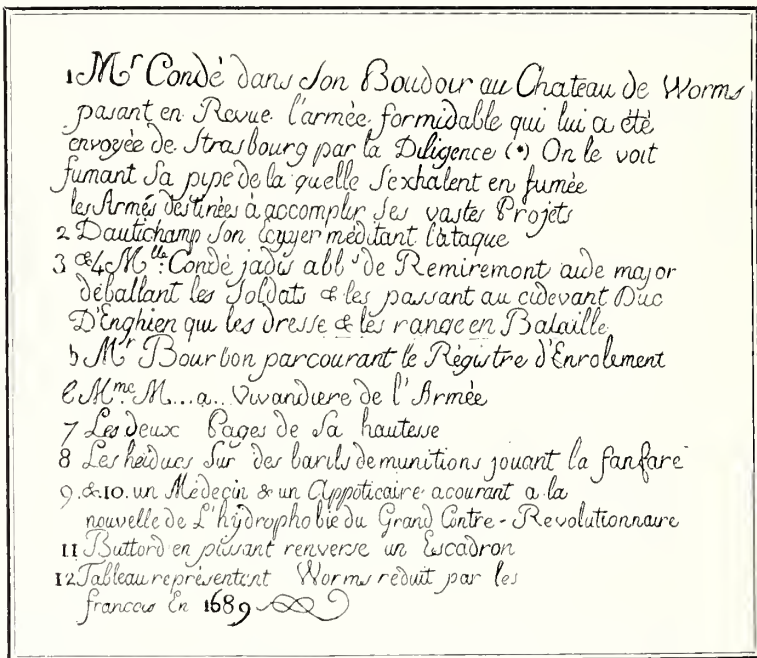 1 Mr Condé dans son Boudoir au Chateau de Worms
pasant en Revue l'armée formidable qui lui a été
envoyée de Strasbourg par la Diligence (*) On le voit
fumant sa pipe de la quelle s'exhalent en fumée
les Armés destinées à accomplir ses vastes Projets
2 Dautichamp son Ecyyer méditant l'ataque
3 &4 Mlle Condé jadis abbs de Remiremont aide major
déballant les soldats & les passant au cidevant Duc
D'Enghien qui les dresse & les range en Bataille
5 Mr Bourbon parcourant le Régistre d'Enrolement
6 Mme M...a.. Vivandiere de l'Armée
7 Les deux Pages de sa hautesse
8 Les heiducs sur des barils de munitions jouant la fanfare
9. &.10. un Médecin & un Appoticaire acourant a la
nouvelle de L'hydrophobie du Grand Contre-Revolutionnaire
11 Buttord en pissant renverse un Escadron
12 Tableau représentent Worms reduit par les
francois En 1689